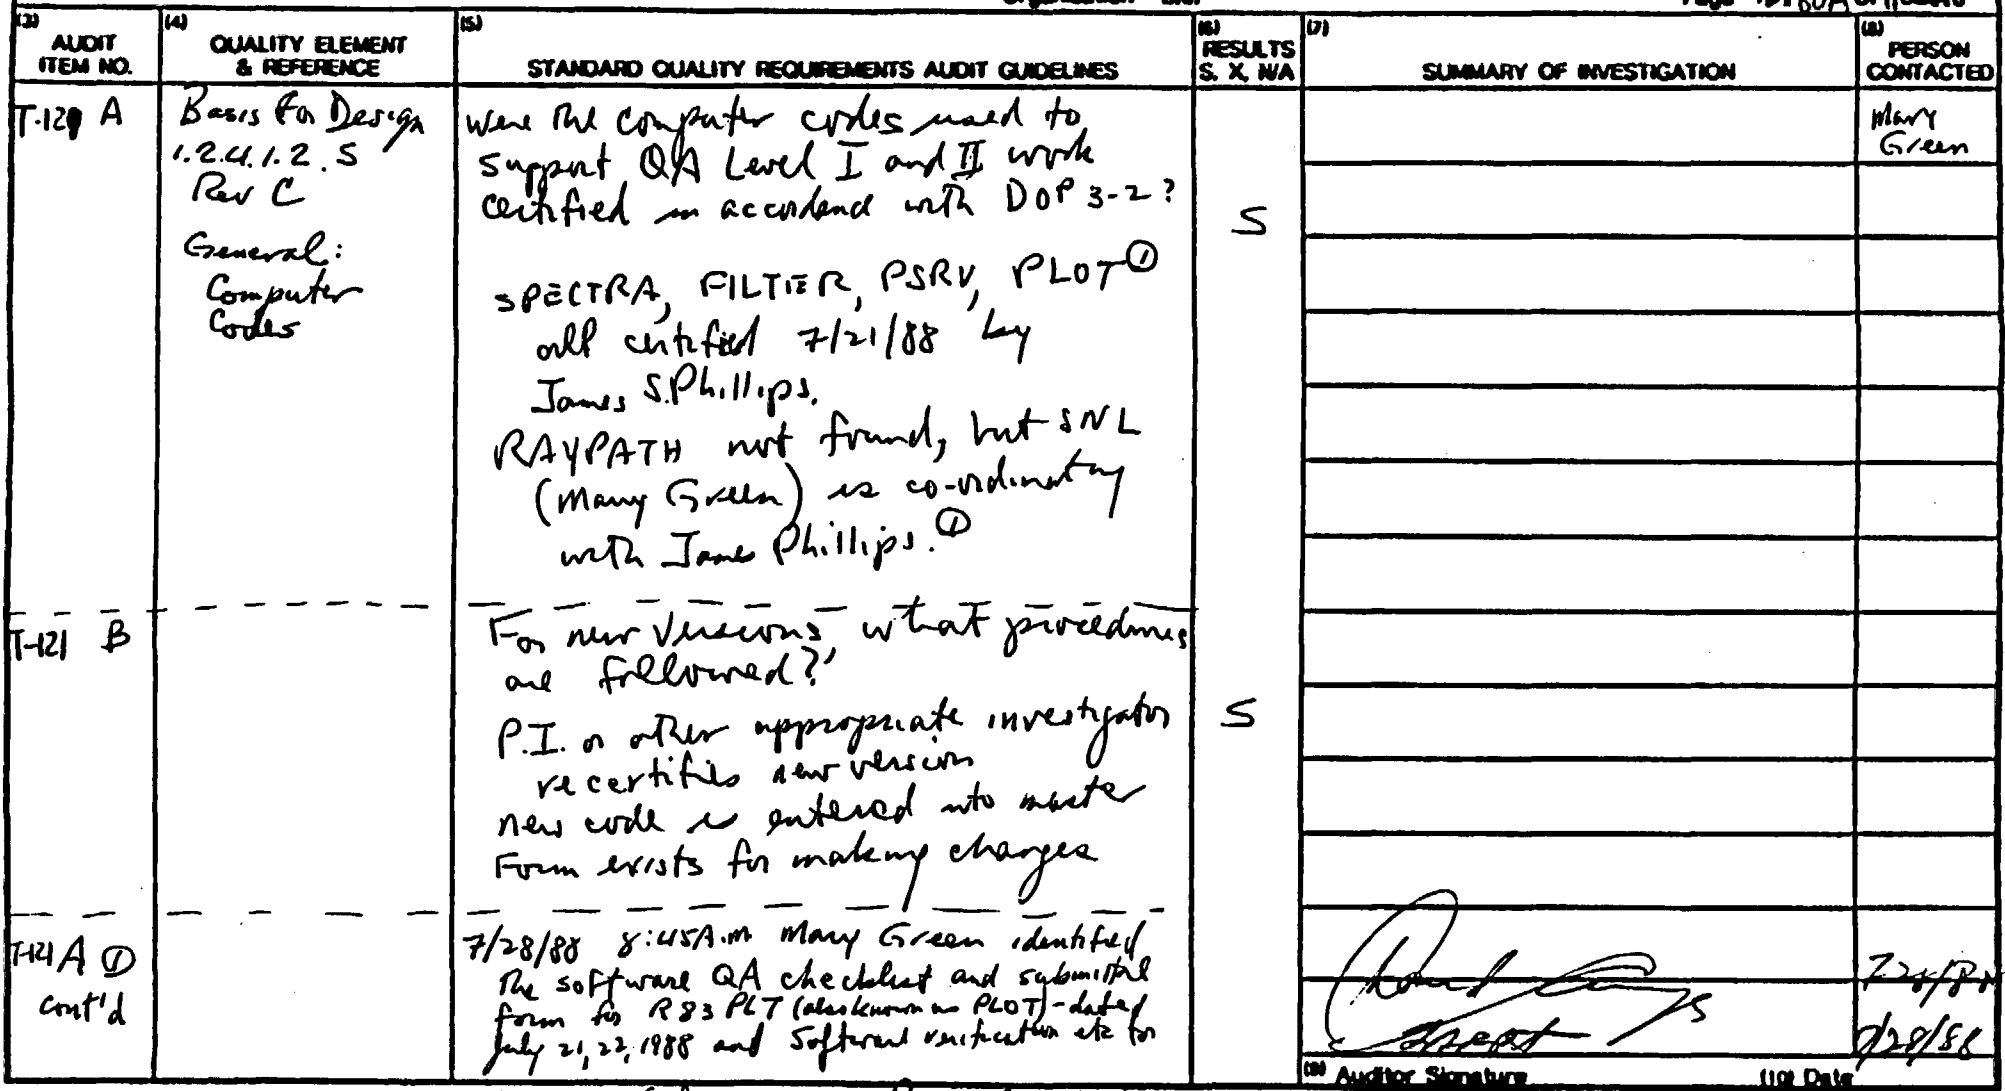 (3) AUDIT ITEM NO.
(4) QUALITY ELEMENT & REFERENCE
(5) STANDARD QUALITY REQUIREMENTS AUDIT GUIDELINES
(6) RESULTS S, X, N/A
(7) SUMMARY OF INVESTIGATION
(8) PERSON CONTACTED
T-121 A
Basis for Design
1.2.4.1.2.S
Rev C
General:
Computer
Codes
Were the computer codes used to
support QA Level I and II work
certified in accordance with DOP 3-2?
S
SPECTRA, FILTER, PSRV, PLOT ①
all certified 7/21/88 by
James S. Phillips.
RAYPATH not found, but SNL
(Mary Green) is co-ordinating
with James Phillips. ①
Mary
Green
T-121 B
For new versions, what procedures
are followed?
S
P.I. or other appropriate investigator
recertifies new version
new code is entered into master
Form exists for making changes
T-121 A ①
cont'd
7/28/88 8:45 A.m Mary Green identified
the software QA checklist and submittal
form for R83PLT (also known as PLOT) - dated
July 21, 22, 1988 and Software verification etc for
7/28/88
(9) Auditor Signature
(10) Date